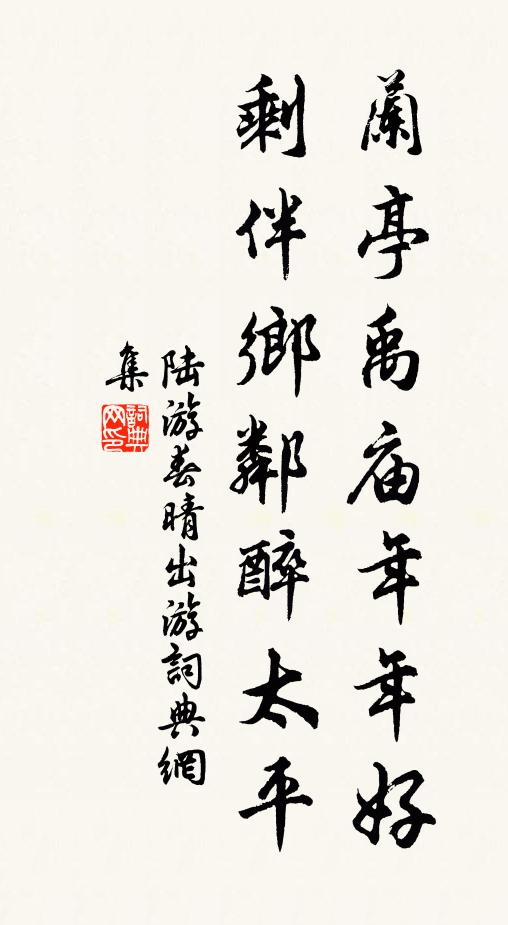 蘭亭禹庙年年好
剩伴鄉鄰醉太平
陆游春晴出游詞典網
集
詞典
网印